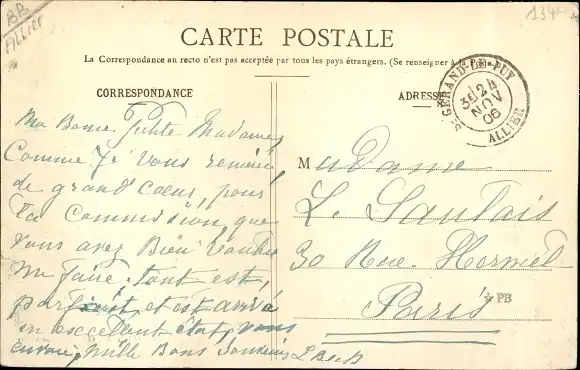 BB
ALLIER
134
CARTE POSTALE
La Correspondance au recto n'est pas acceptée par tous les pays étrangers. (Se renseigner à la Poste.)
CORRESPONDANCE
ADRESSE
St GERAND-LE-PUY
24
NOV
06
ALLIER
Ma Bonne Petite Madame,
Comme Je vous remercie
de grand Cœur, pour
la Commission, que
vous avez Bien Voulu
me faire, tout est,
parfait, et est arrivé
en excellent état, vous
envoie, Mille Bons Souvenirs
Madame
L. Sautais
30 Rue Hermel
Paris
PB